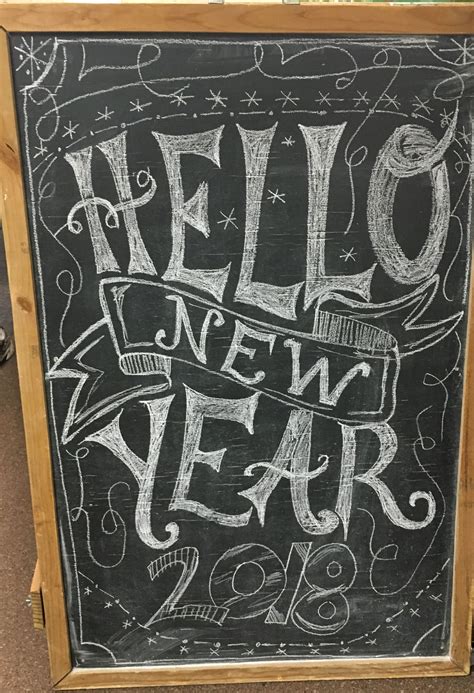 HELLO
NEW
YEAR
2018